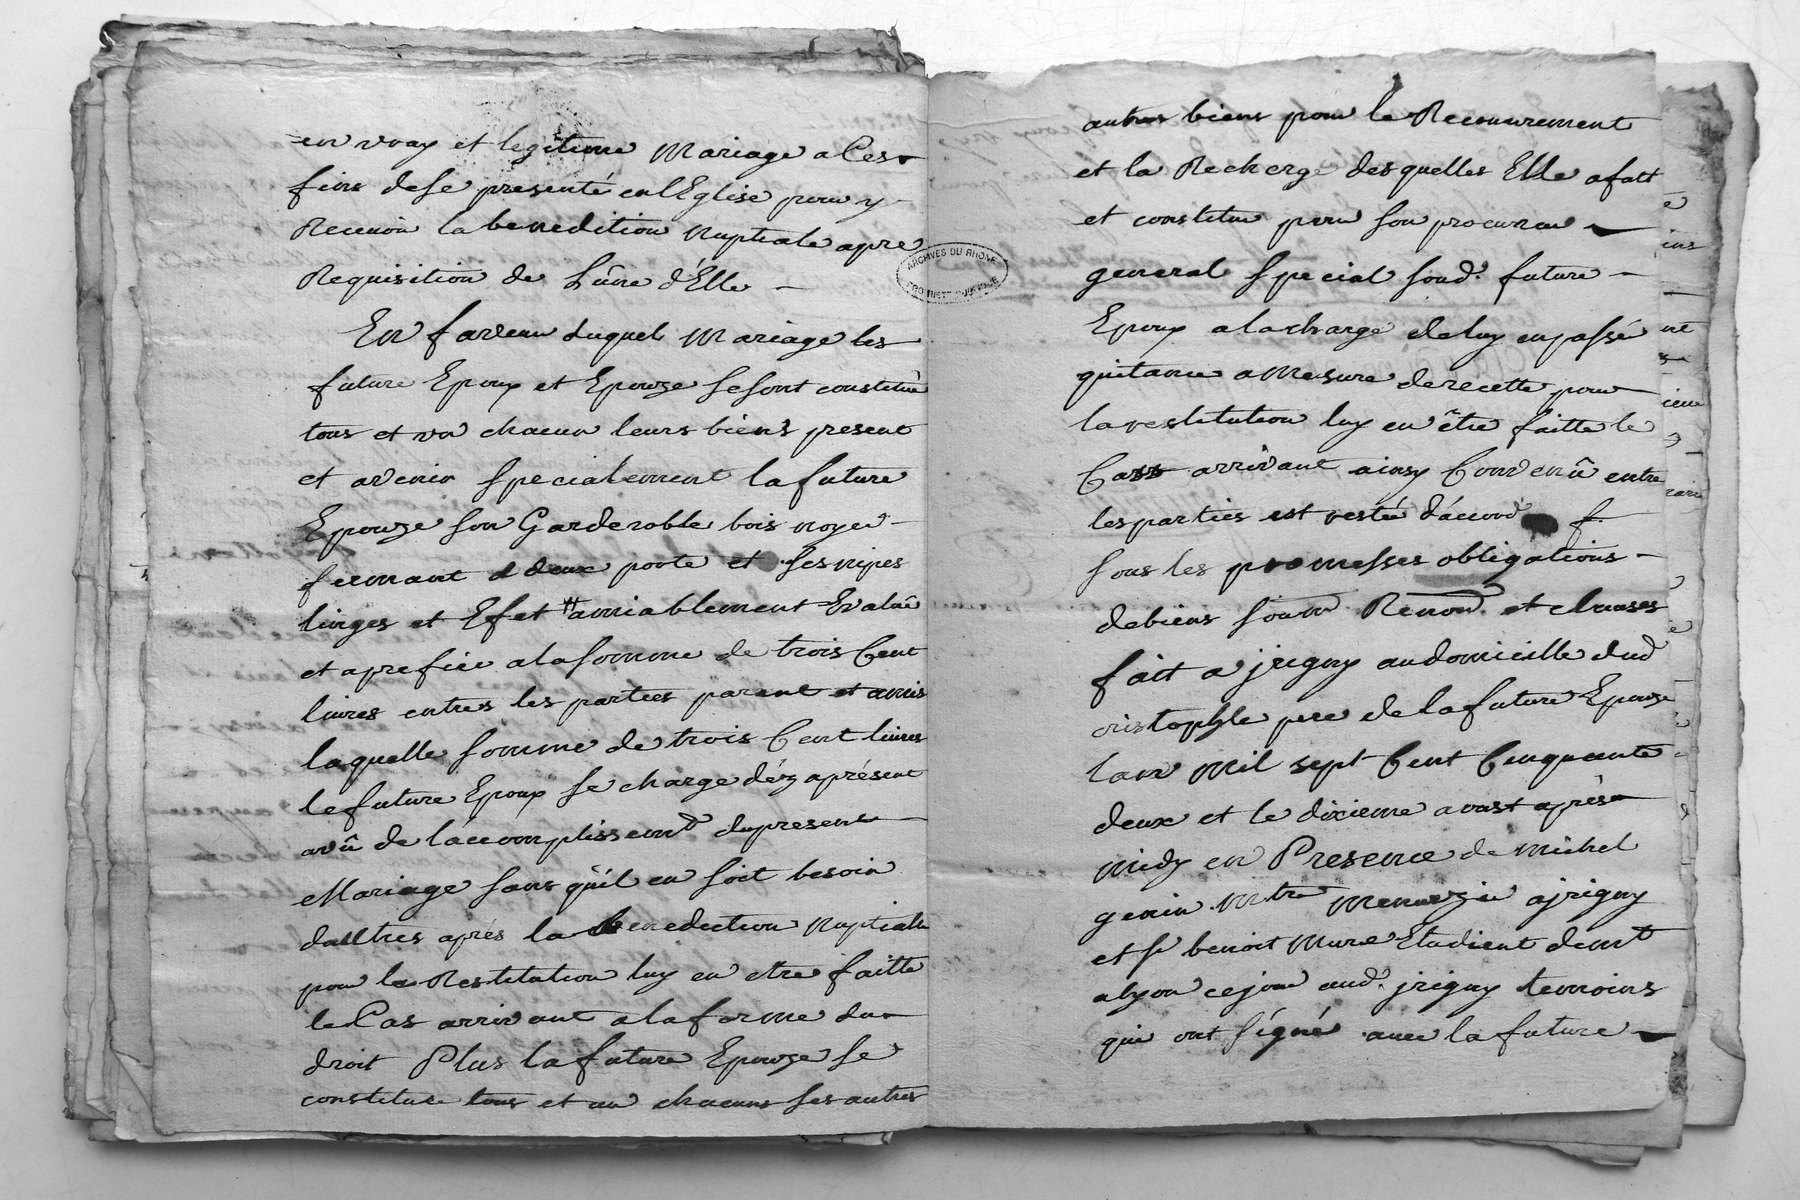 en vray et legitime Mariage a Ces
fins dese presenté en lEglise pour y
Recevoir la benedition nuptiale apre
Requisition de Lûne d'Elle
En faveur duquel Mariage les
future Epoux et Epouze se sont constitué
tous et un chacun leurs biens present
et avenir specialement la future
Epouze son Garderoble bois noyer
fermant a deux porte et ses nipes
linges et Efet amiablement Evalué
et aprefiée a la somme de trois Cent
livres entres les parties parent et amis
laquelle somme de trois Cent livres
le future Epoux se charge déz aprésent
avû de laccomplissemt. du present
Mariage sans qu'il en soit besoin
dautres aprés la benediction nuptiale
pour la Restitution luy en etre faitte
le Cas arrivant a la forme du
droit Plus la future Epouze se
constitue tous et un chacuns ses autres
ARCHIVES DU RHONE
autres biens pour le Recouvrement
et la Recherge desquelles Elle a fait
et constitue pour son procureur
general special soud. future
Epoux a la charge de luy en passé
quitance a Mesure de recette pour
la restitution luy en être faitte le
Cass arrivant ainsy Convenû entre
les parties est resté d'accord
sous les promesses obligations
de biens soum. Renon. et clauses
fait a jrigny au domicille dud
cristophle pere de la future Epouze
lan mil sept Cent Cinquante
deux et le dixieme avast après
midy en Presence de michel
genin mtre menuzie a jrigny
et sr benoit mure Etudient demt
a lyon ce jour aud. jrigny temoins
qui ont signé avec la future